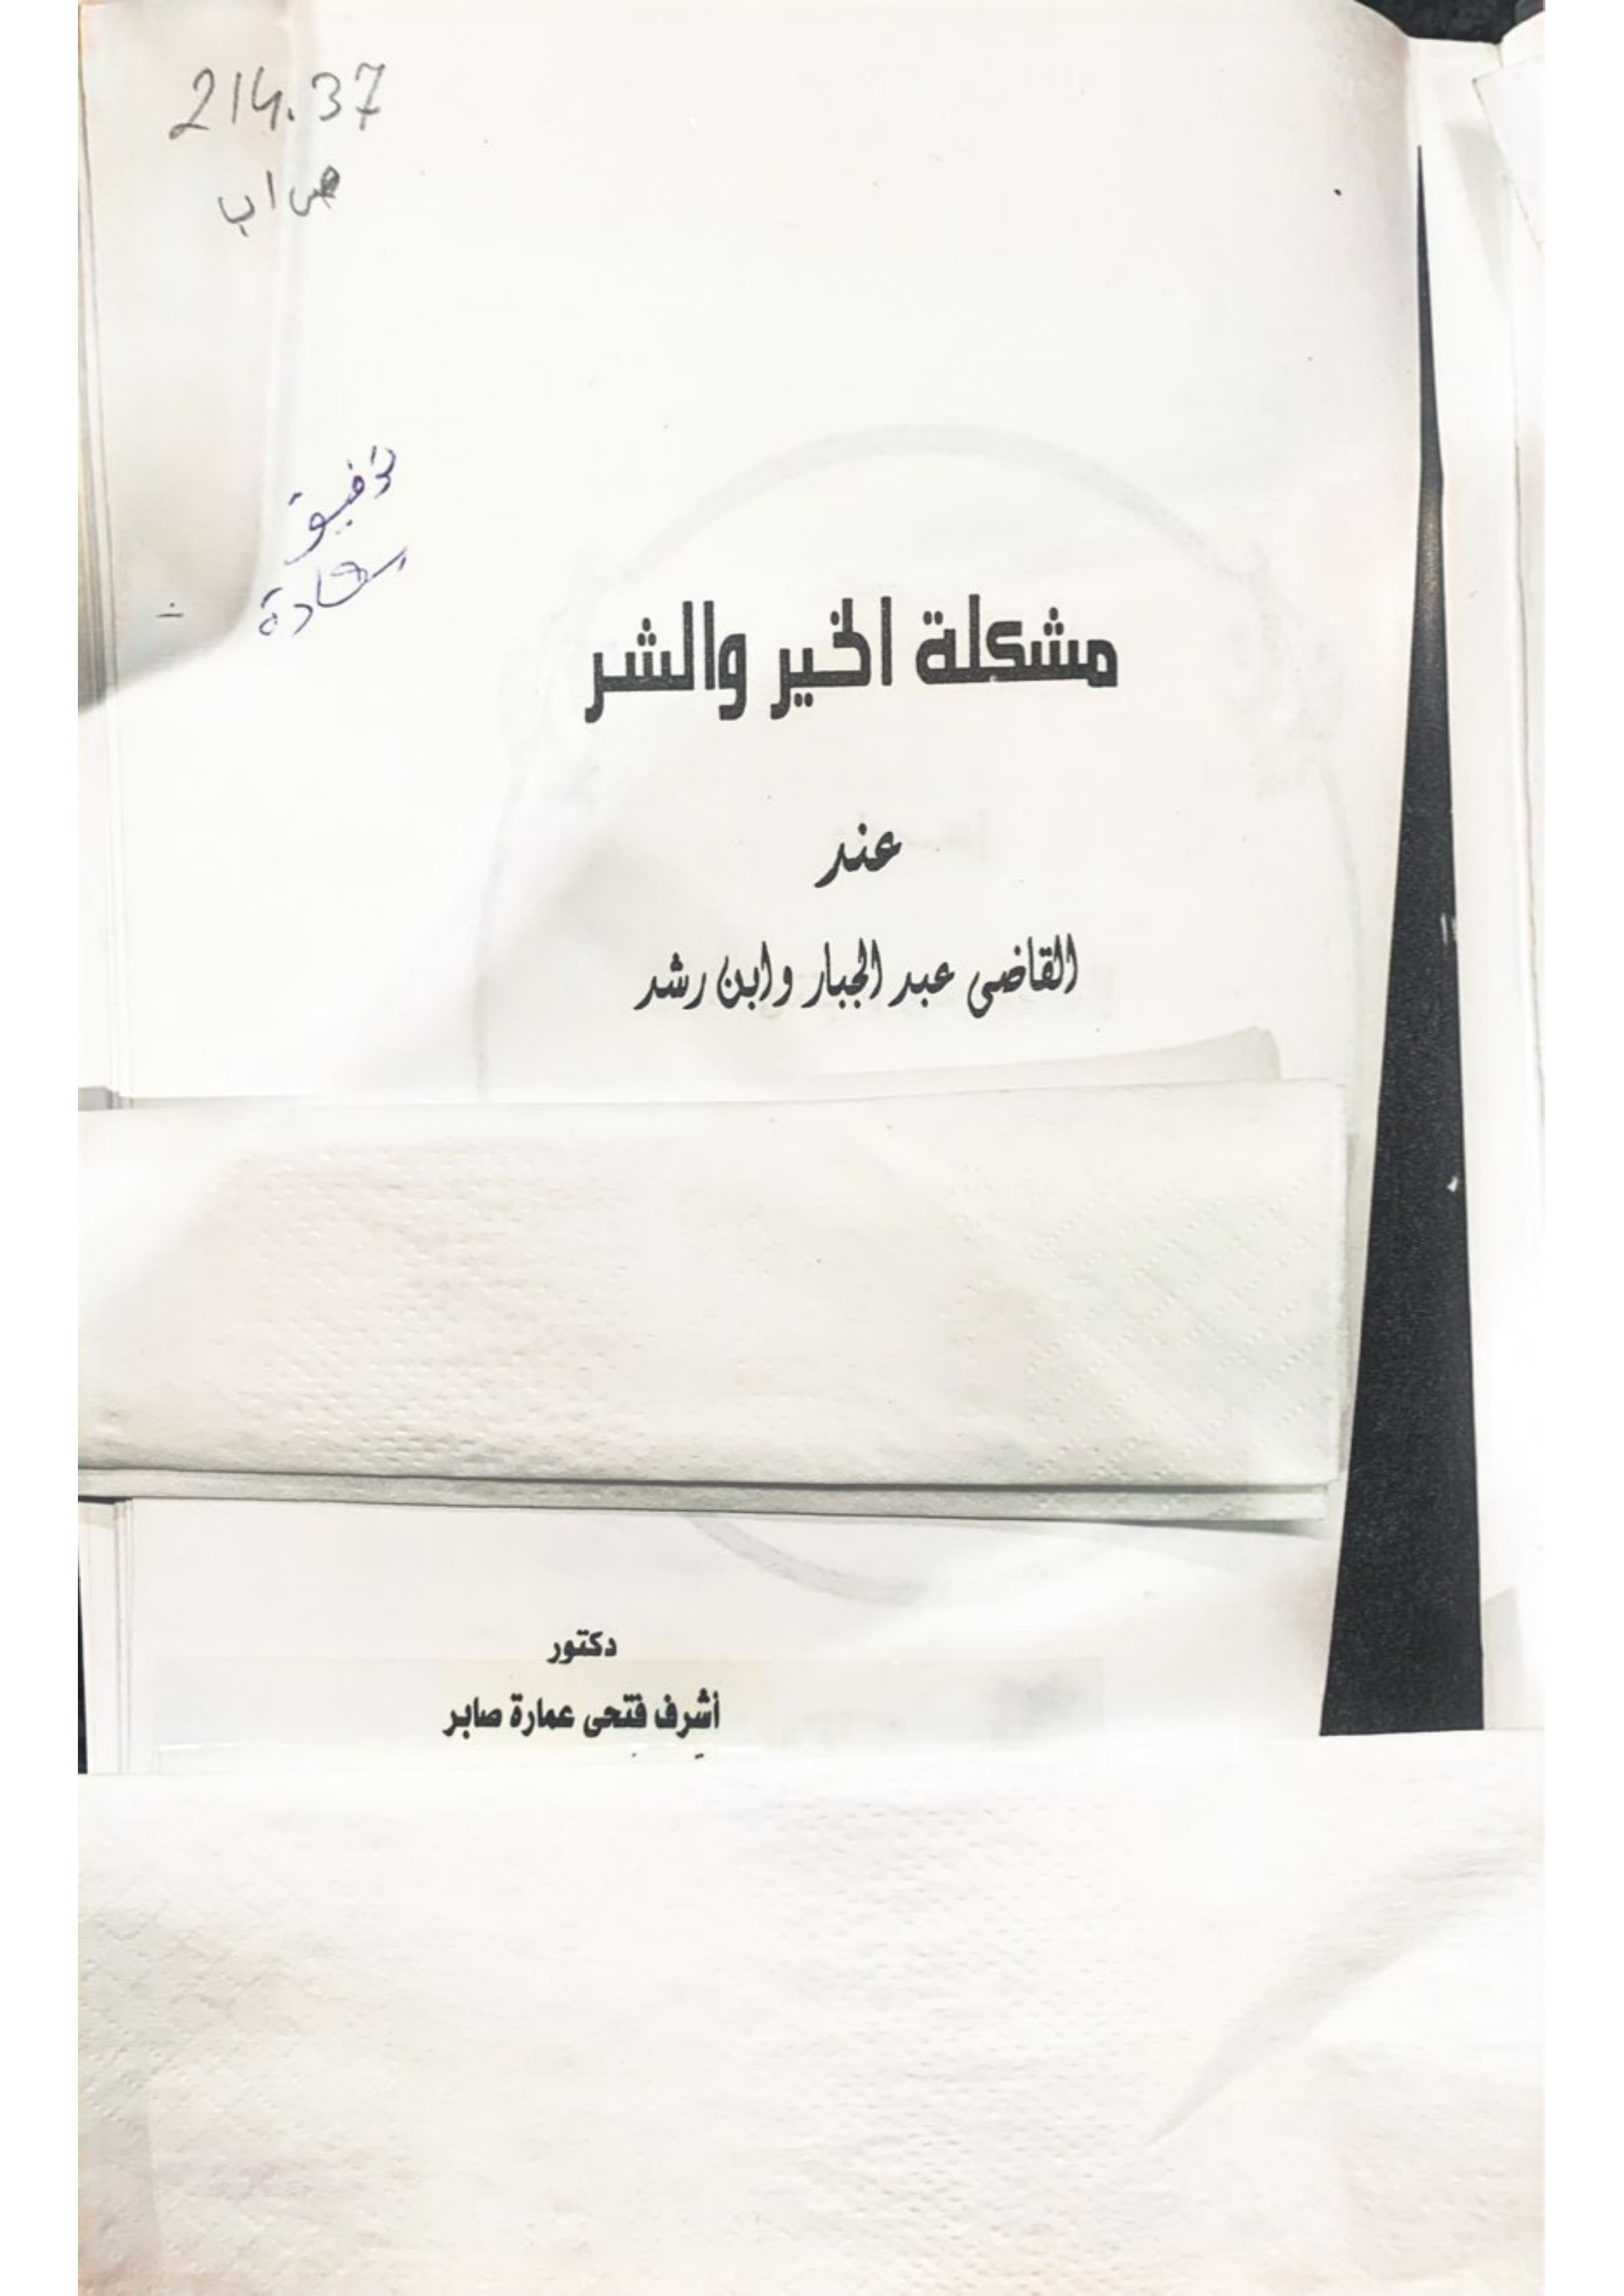 214.37
ص اب
توفيق
سعادة
مشكلة الخير والشر
عند
القاضى عبد الجبار وابن رشد
دكتور
أشرف فتحى عمارة صابر